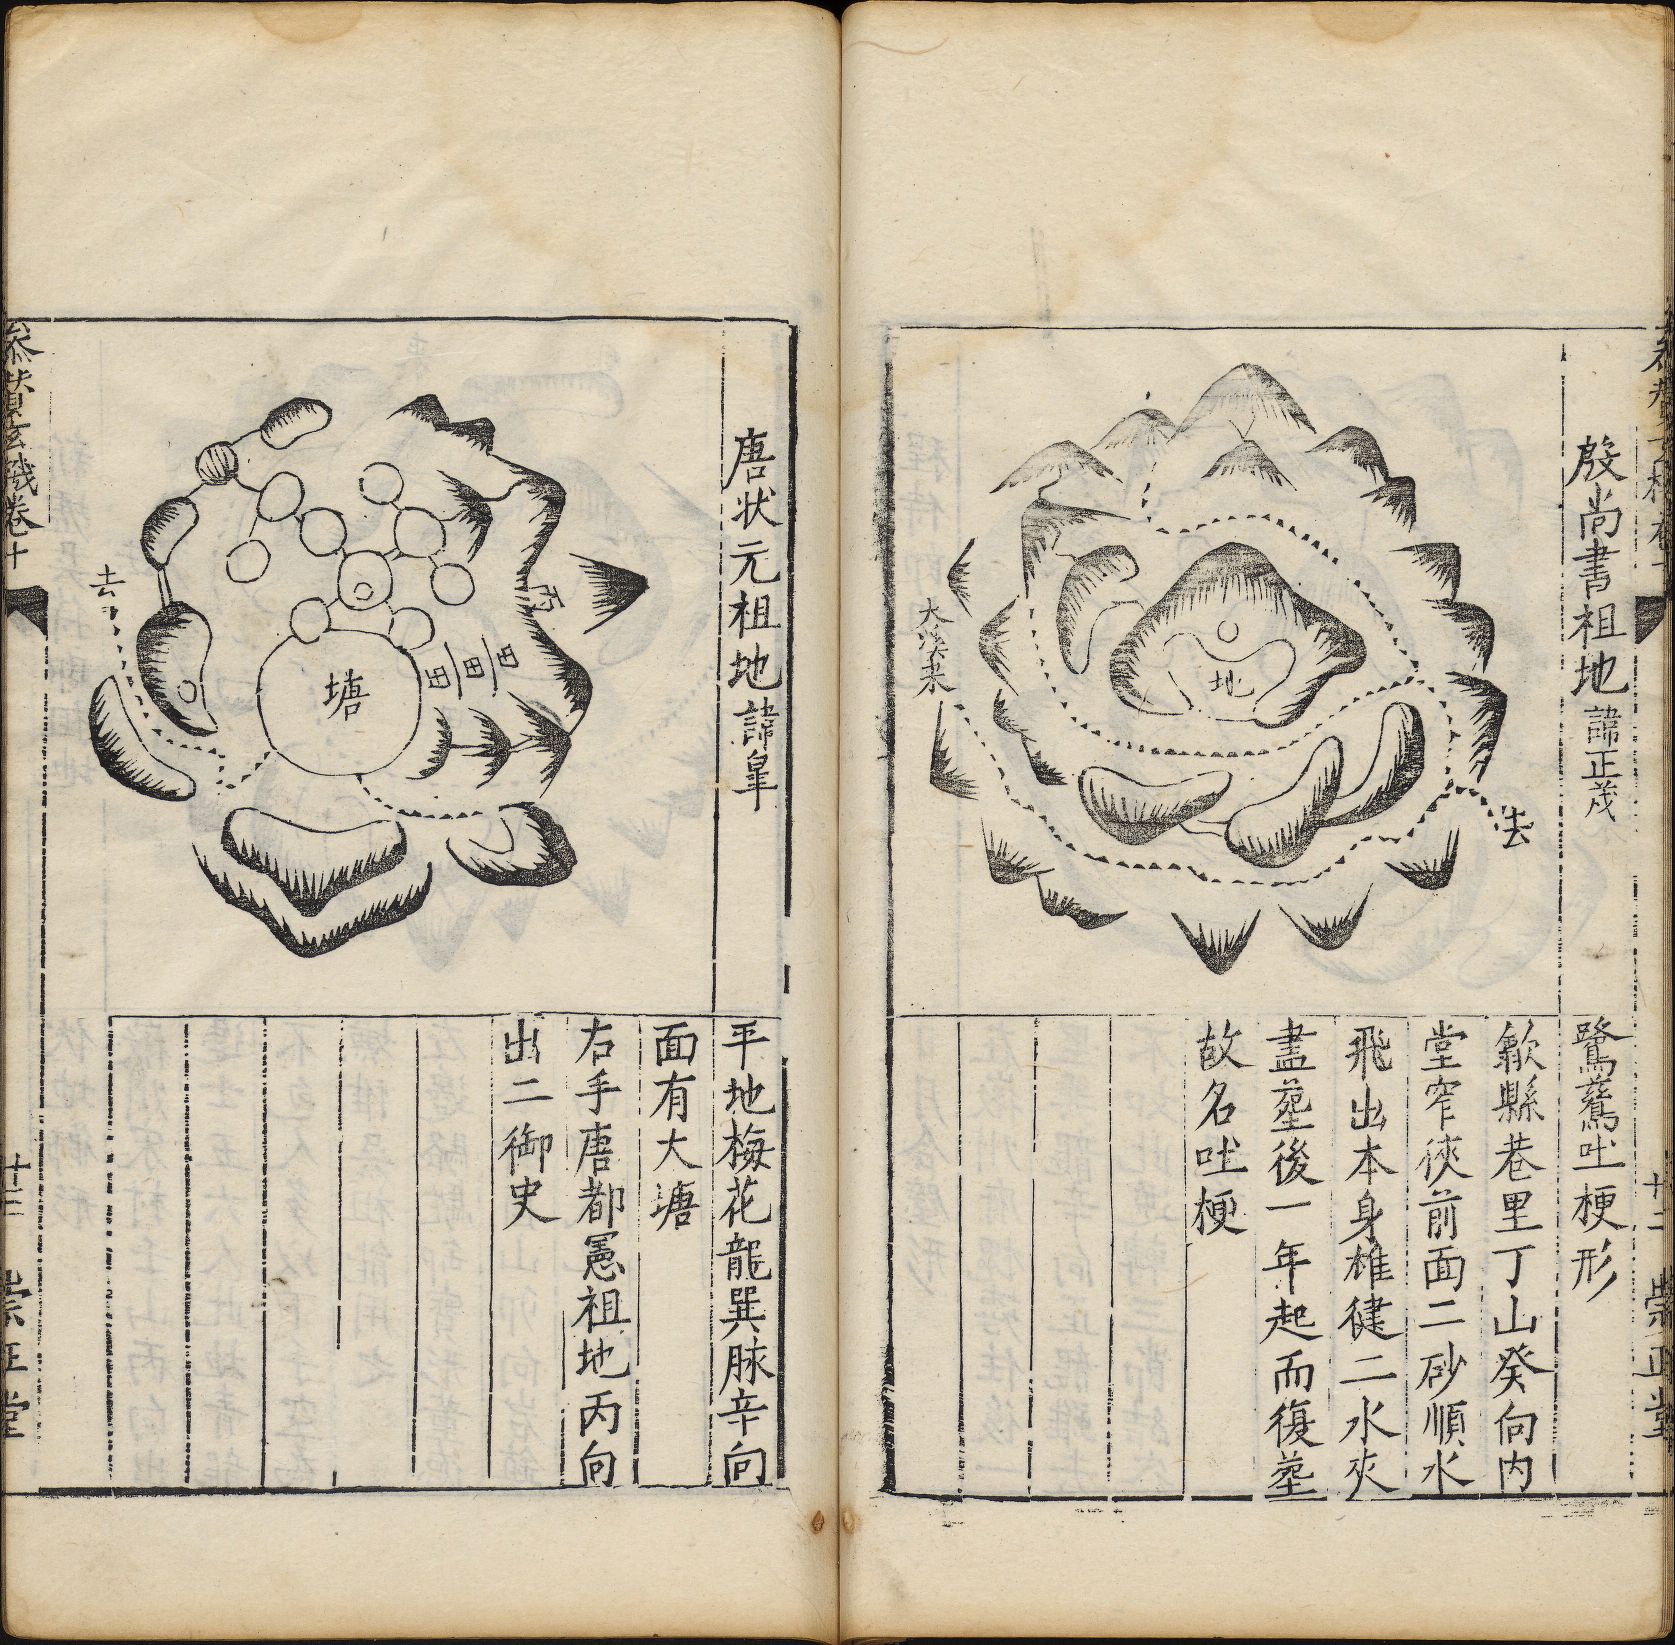 殷尚書祖地諱正茂
大溪来
地
去
鷺鷥吐梗形
歙縣巷里丁山癸向内
堂窄狹前面二砂順水
飛出本身雄健二水夾
盡塟後一年起而復塟
故名吐梗
廿二
崇正堂
唐状元祖地諱皐
丙
田
田
田
塘
去
平地梅花龍巽脉辛向
面有大塘
右手唐都憲祖地丙向
出二御史
叅賛玄機卷十
廿三
崇正堂